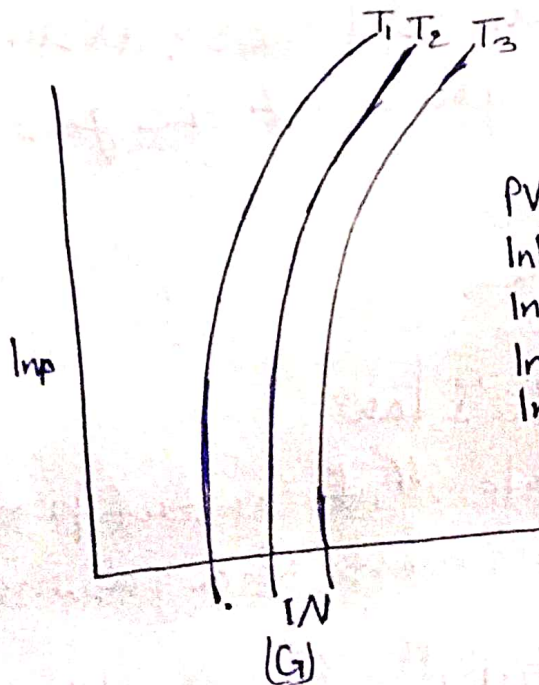 T₁ T₂ T₃
PV
ln
ln
ln
ln
lnp
1/V
(G)